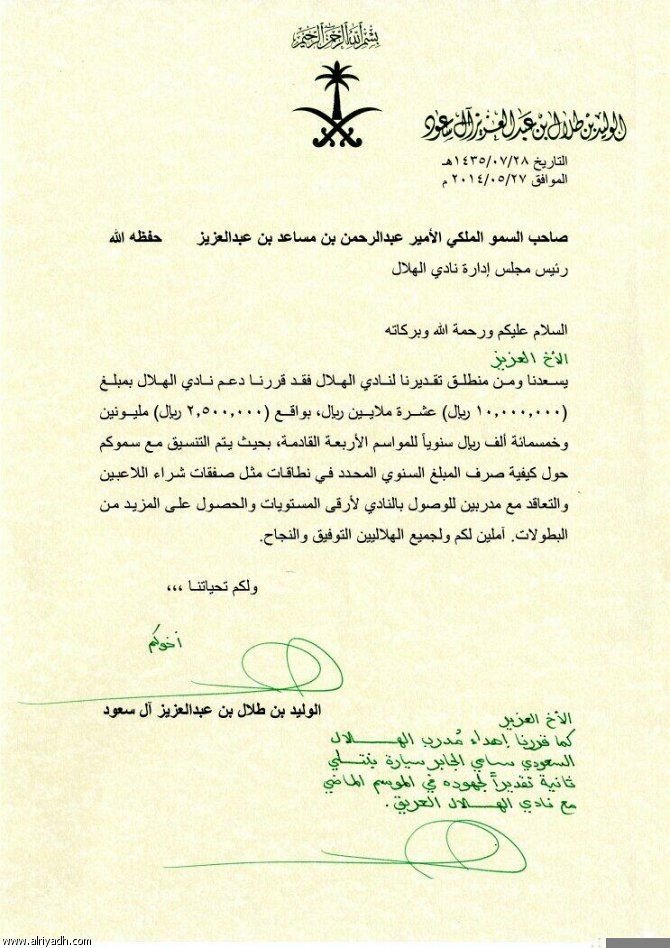 بسم الله الرحمن الرحيم
الوليد بن طلال بن عبدالعزيز آل سعود
التاريخ ١٤٣٥/٠٧/٢٨هـ
الموافق ٢٠١٤/٠٥/٢٧ م
صاحب السمو الملكي الأمير عبدالرحمن بن مساعد بن عبدالعزيز حفظه الله
رئيس مجلس إدارة نادي الهلال
السلام عليكم ورحمة الله وبركاته
الأخ العزيز
يسعدنا ومن منطلق تقديرنا لنادي الهلال فقد قررنا دعم نادي الهلال بمبلغ
(١٠,٠٠٠,٠٠٠ ريال) عشرة ملايين ريال، بواقع (٢,٥٠٠,٠٠٠ ريال) مليونين
وخمسمائة ألف ريال سنوياً للمواسم الأربعة القادمة، بحيث يتم التنسيق مع سموكم
حول كيفية صرف المبلغ السنوي المحدد في نطاقات مثل صفقات شراء اللاعبين
والتعاقد مع مدربين للوصول بالنادي لأرقى المستويات والحصول على المزيد من
البطولات. آملين لكم ولجميع الهلاليين التوفيق والنجاح.
ولكم تحياتنا ،،،
أخوكم
الوليد بن طلال بن عبدالعزيز آل سعود
الأخ العزيز
كما قررنا إهداء مُدرب الهلال
السعودي سامي الجابر سيارة بنتلي
ثانية تقديراً لجهوده في الموسم الماضي
مع نادي الهلال العريق.
www.alriyadh.com